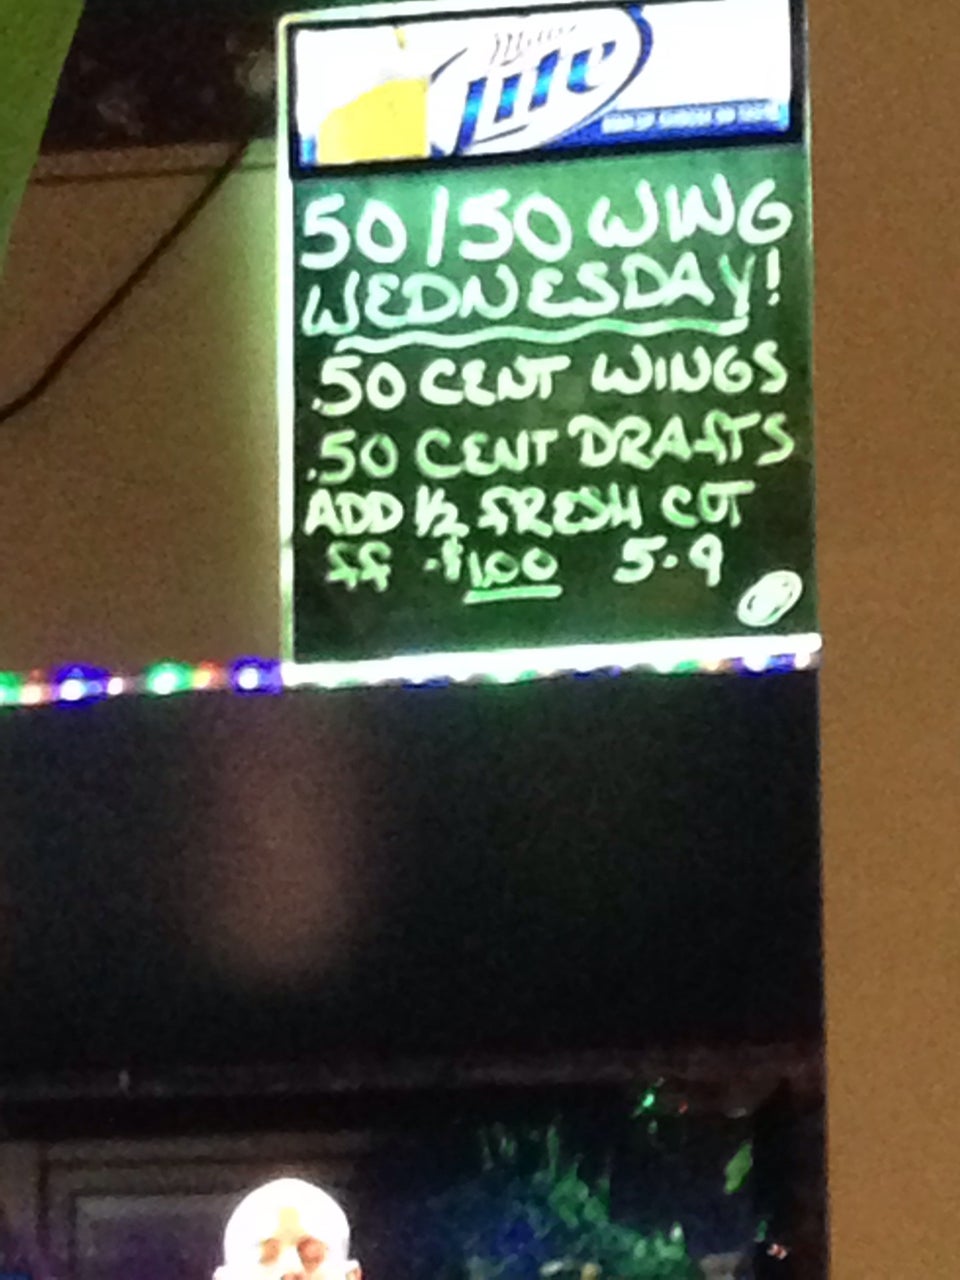 Miller
Lite
50/50 WING
WEDNESDAY!
.50 CENT WINGS
.50 CENT DRAFTS
ADD 1/2 FRESH CUT
FF -$1.00 5-9